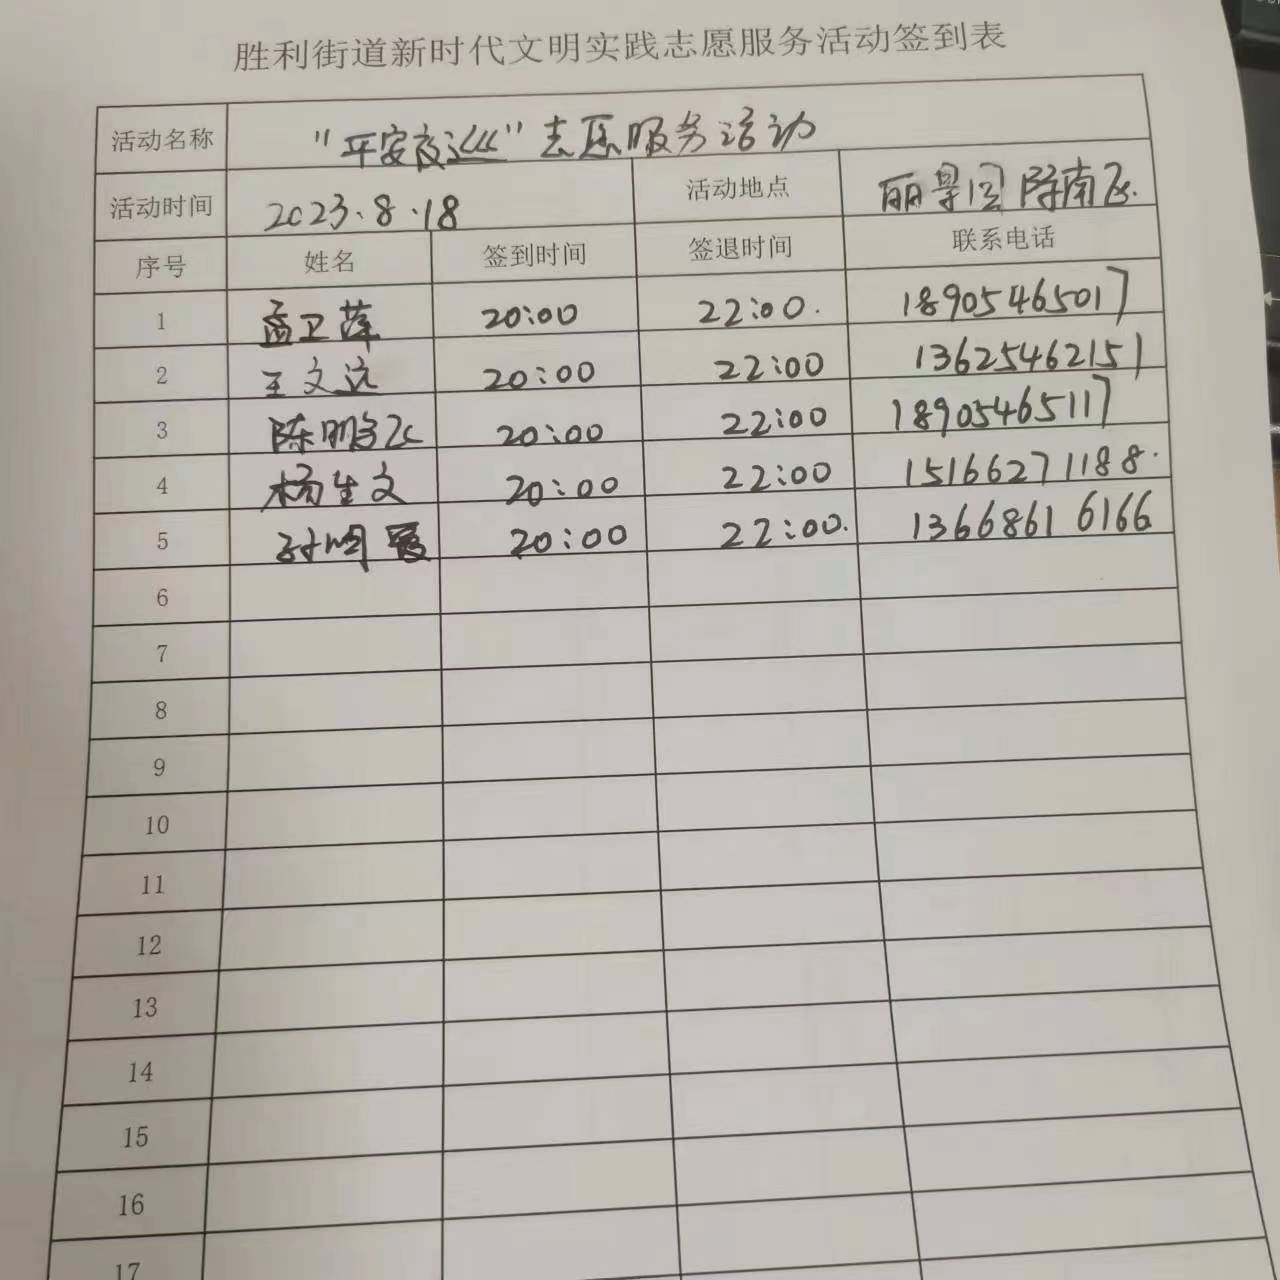 胜利街道新时代文明实践志愿服务活动签到表
活动名称 "平安夜巡"志愿服务活动
活动时间 2023.8.18 活动地点 丽景园
序号 姓名 签到时间 签退时间 联系电话
1 孟卫萍 20:00 22:00. 18905465017
2 王文远 20:00 22:00 13625462151
3 陈鹏飞 20:00 22:00 18905465117
4 杨生文 20:00 22:00 15166271188.
5 20:00 22:00. 13668616166
6
7
8
9
10
11
12
13
14
15
16
17